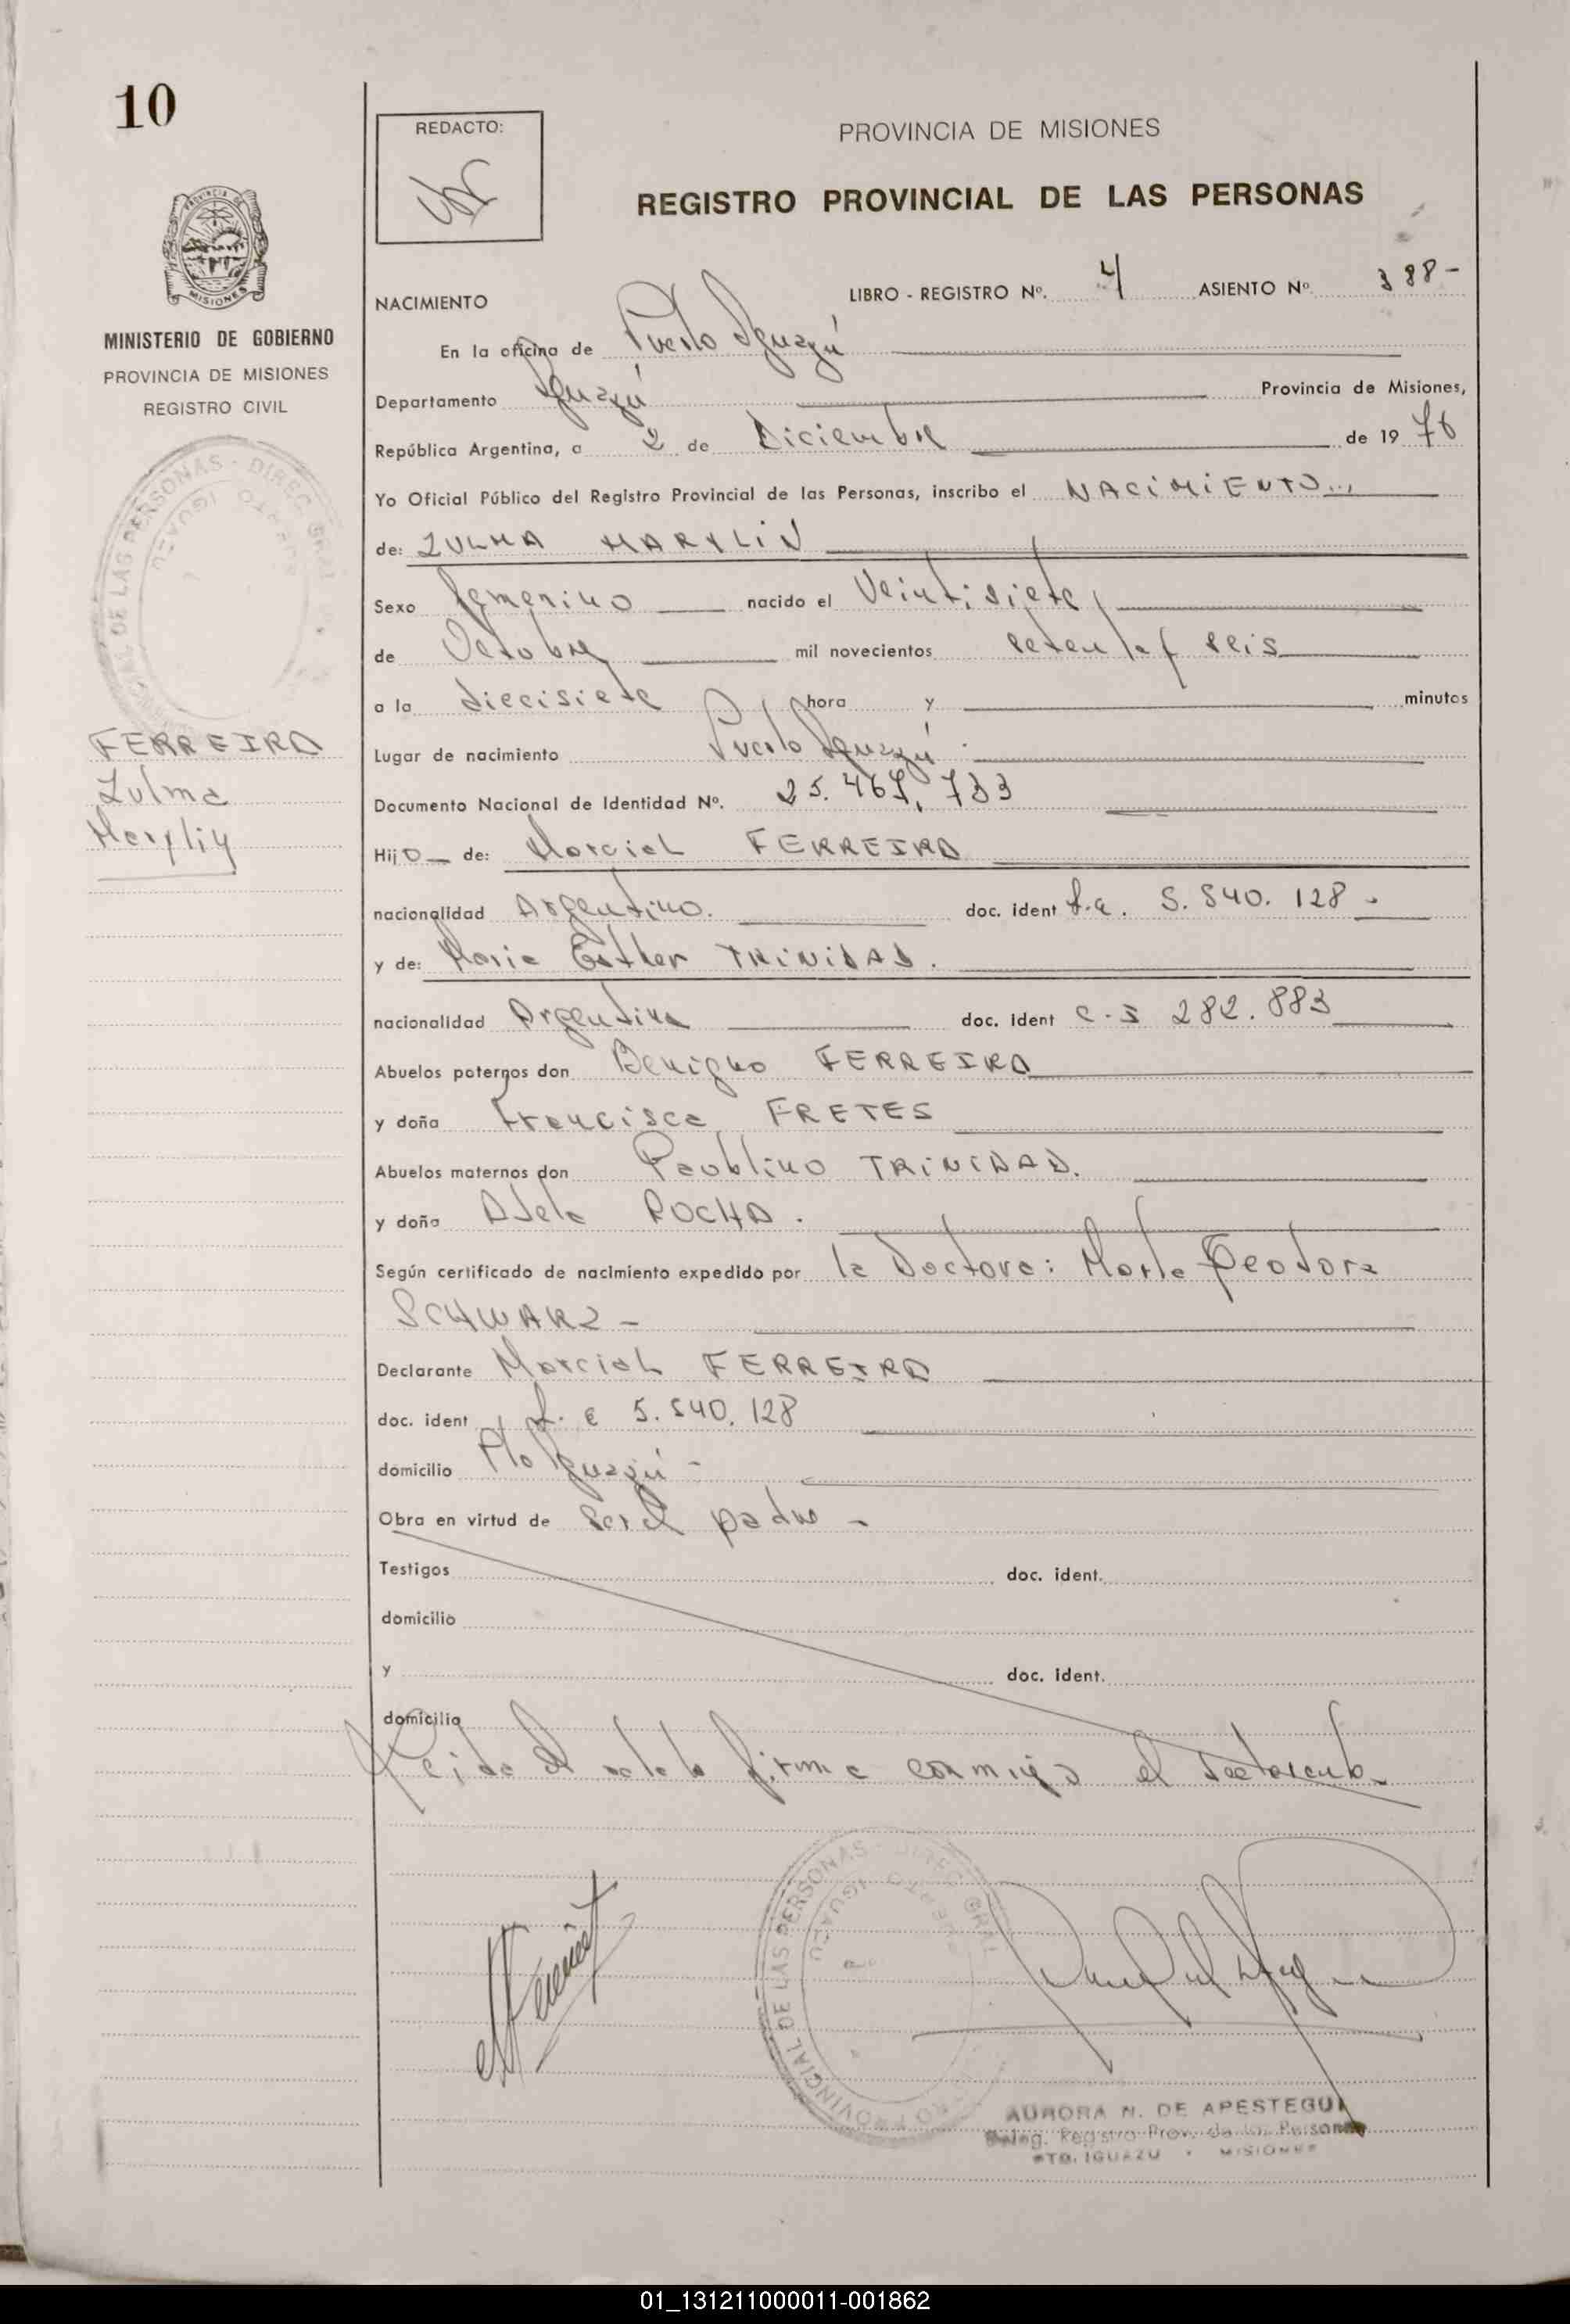 10
MINISTERIO DE GOBIERNO
PROVINCIA DE MISIONES
REGISTRO CIVIL
FERREIRA
Zulma
Marylin
REDACTO:
PROVINCIA DE MISIONES
REGISTRO PROVINCIAL DE LAS PERSONAS
NACIMIENTO LIBRO - REGISTRO Nº. 4 ASIENTO Nº 388-
En la oficina de Puerto Iguazú
Departamento Iguazú Provincia de Misiones,
República Argentina, a 2 de Diciembre de 19 76
Yo Oficial Público del Registro Provincial de las Personas, inscribo el NACIMIENTO
de: ZULMA MARYLIN
Sexo femenino nacido el Veintisiete
de Octubre mil novecientos setenta y seis
a la diecisiete hora y minutos
Lugar de nacimiento Puerto Iguazú
Documento Nacional de Identidad Nº. 25.467.733
Hijo de: Marcial FERREIRA
nacionalidad Argentino. doc. ident L.E. 5.540.128-
y de: Maria Esther TRINIDAD.
nacionalidad Argentina doc. ident C.I 282.883
Abuelos paternos don Benigno FERREIRA
y doña Francisca FRETES
Abuelos maternos don Paublino TRINIDAD.
y doña Adela ROCHA.
Según certificado de nacimiento expedido por la Doctora: Marta Teodora
SCHWARZ-
Declarante Marcial FERREIRA
doc. ident L.E 5.540.128
domicilio Pto Iguazú-
Obra en virtud de ser el padre-
Testigos doc. ident.
domicilio
y doc. ident.
domicilio
Leida el acta la firma conmigo el declarante
AURORA N. DE APESTEGUI
Deleg. Registro Prov. de las Personas
PTO. IGUAZU - MISIONES
01_131211000011-001862